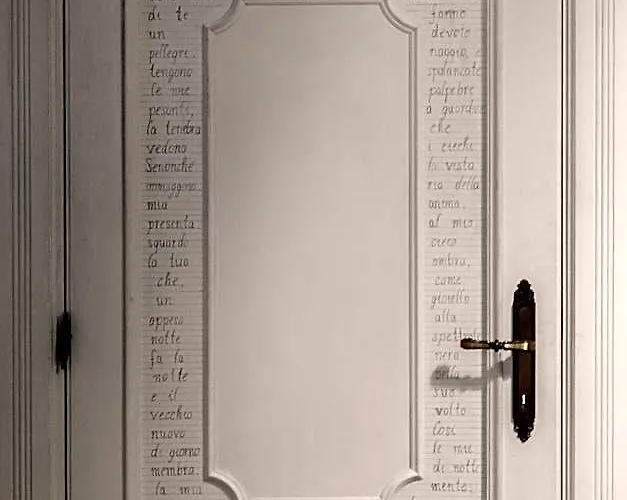 di te
un
tengono
le mie
pesanti,
la tenebra
vedono
Senonché
immaggine
mia
presenta
sguardo
la tua
che,
un
appeso
notte
fa la
notte
e il
vecchio
nuovo
di giorno
membra.
la mia
fanno
devoto
spalancate
palpebre
a guardare
che
i ciechi
la vista
ria della
anima
al mio
cieco
ombra,
come
gioiello
alla
nera
bella
suo
volto
Così
le mie
di notte
mente.